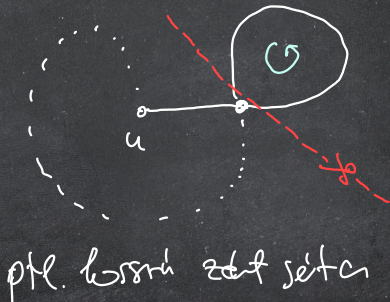 u
ptl. hosszú zárt séta